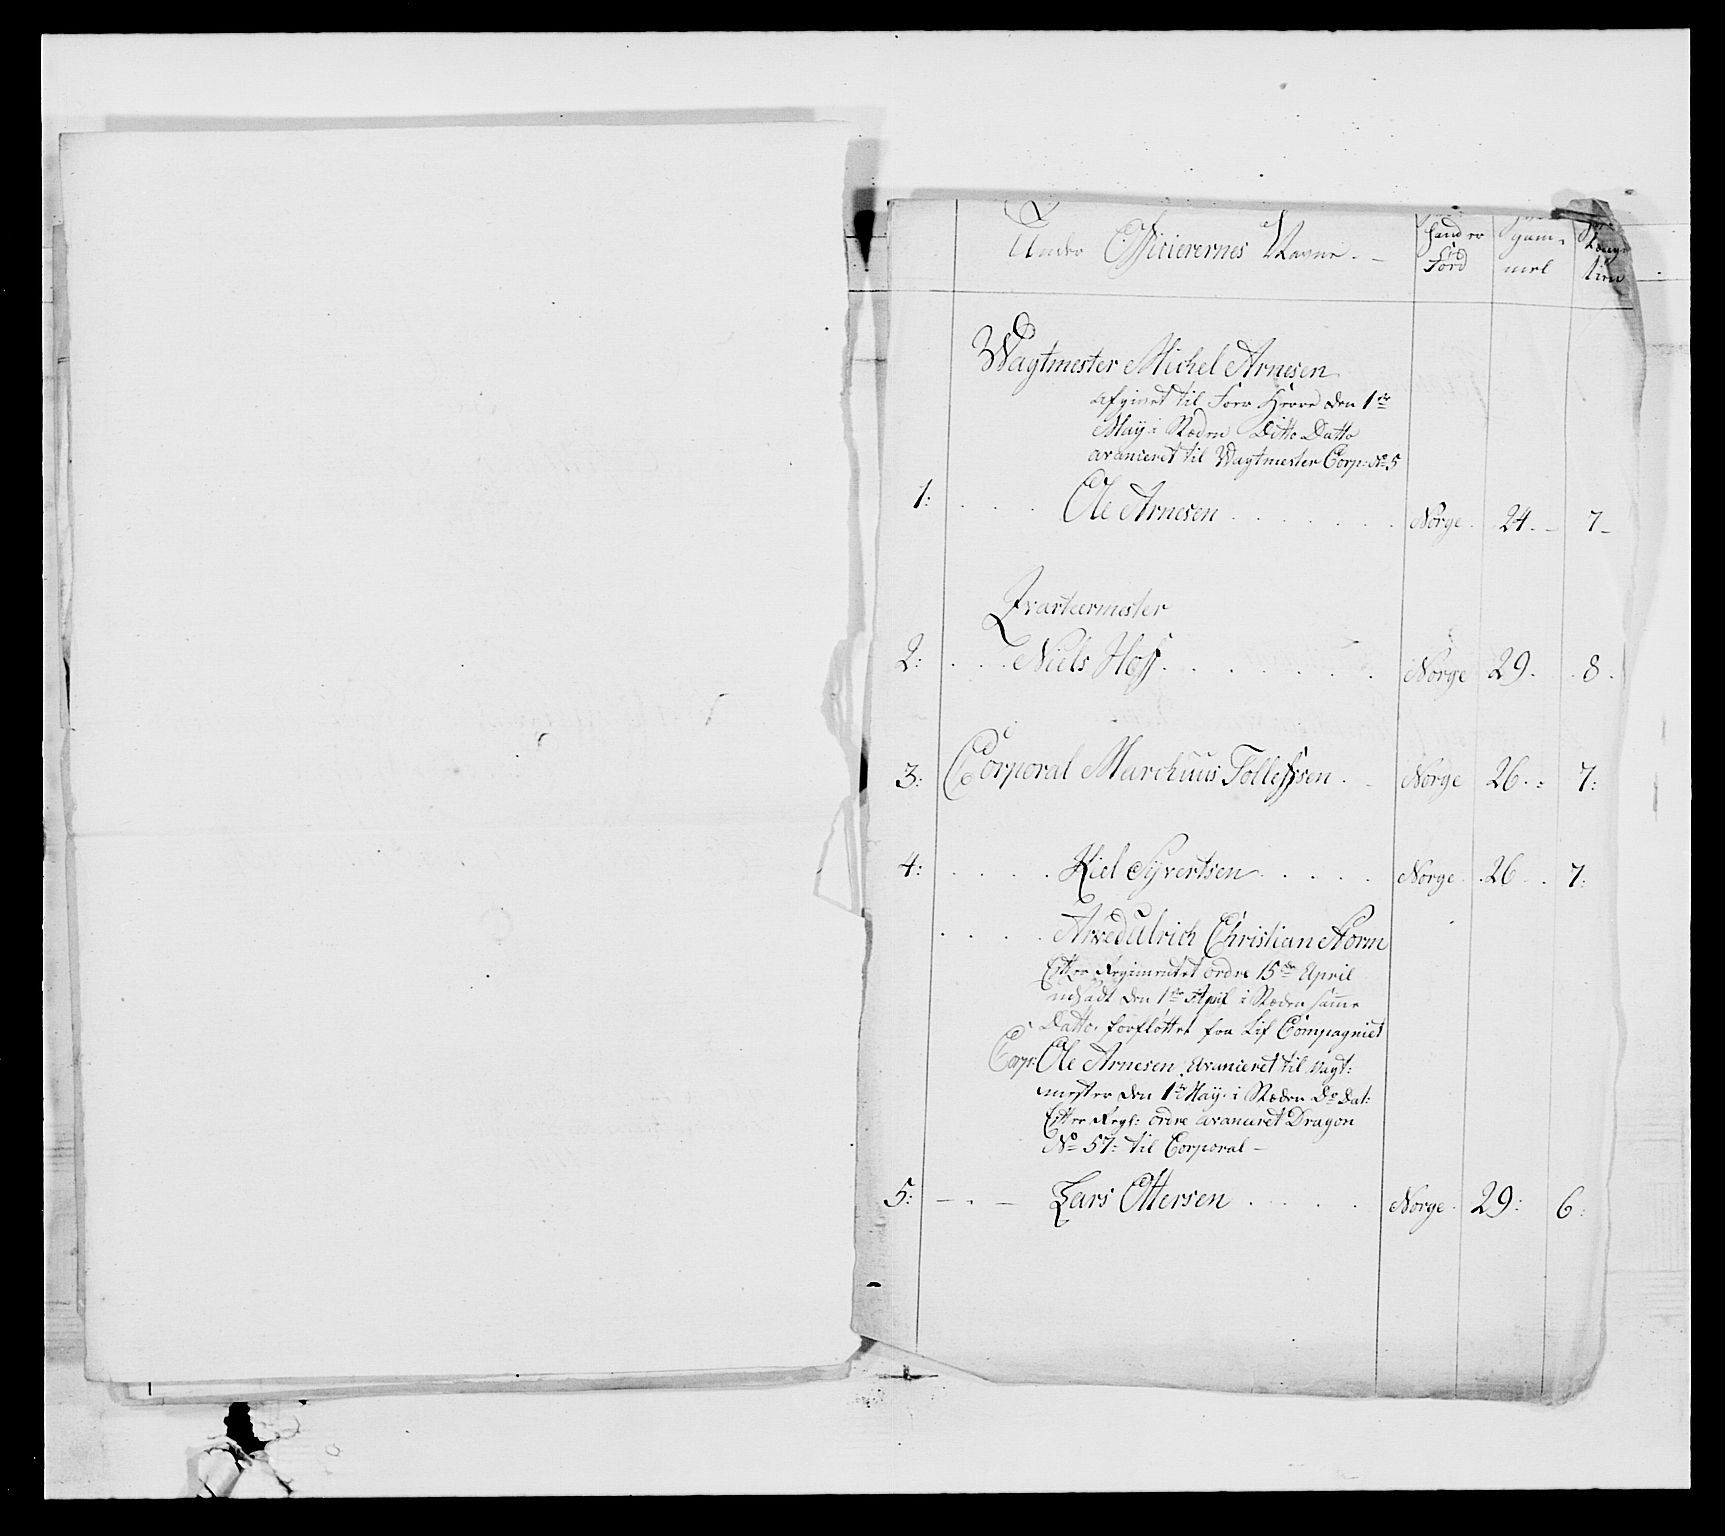 Under Officierernes Navne.
hand er
Föed
gam-
mel
tien
Wagtmester Michel Arnesen
afginet til Herre den 1de
Maÿ i Stæden Ditto Datto
avanceret til Wagtmester Corp: No 5
1: Ole Arnesen Norge 24. 7
Qvarteermester
2: Niels Hoff Norge 29. 8.
3: Corporal Marchuus Tollefssen Norge 26. 7:
4: Kiel Syvertsen Norge 26. 7:
Arved Ulrich Christian Storm
Efter Regimentet ordre 15de April
udsadt den 1de April i Stæden samme
Datto, forflöttet fra Lif Compagniet
Corp: Ole Arnesen Avanceret til Vagt:
mester den 1de Maÿ i Stæden Do Dat:
Efter Regt: ordre avanceret Dragon
No 57: til Corporal
5: Lars Ottersen Norge 29: 6: